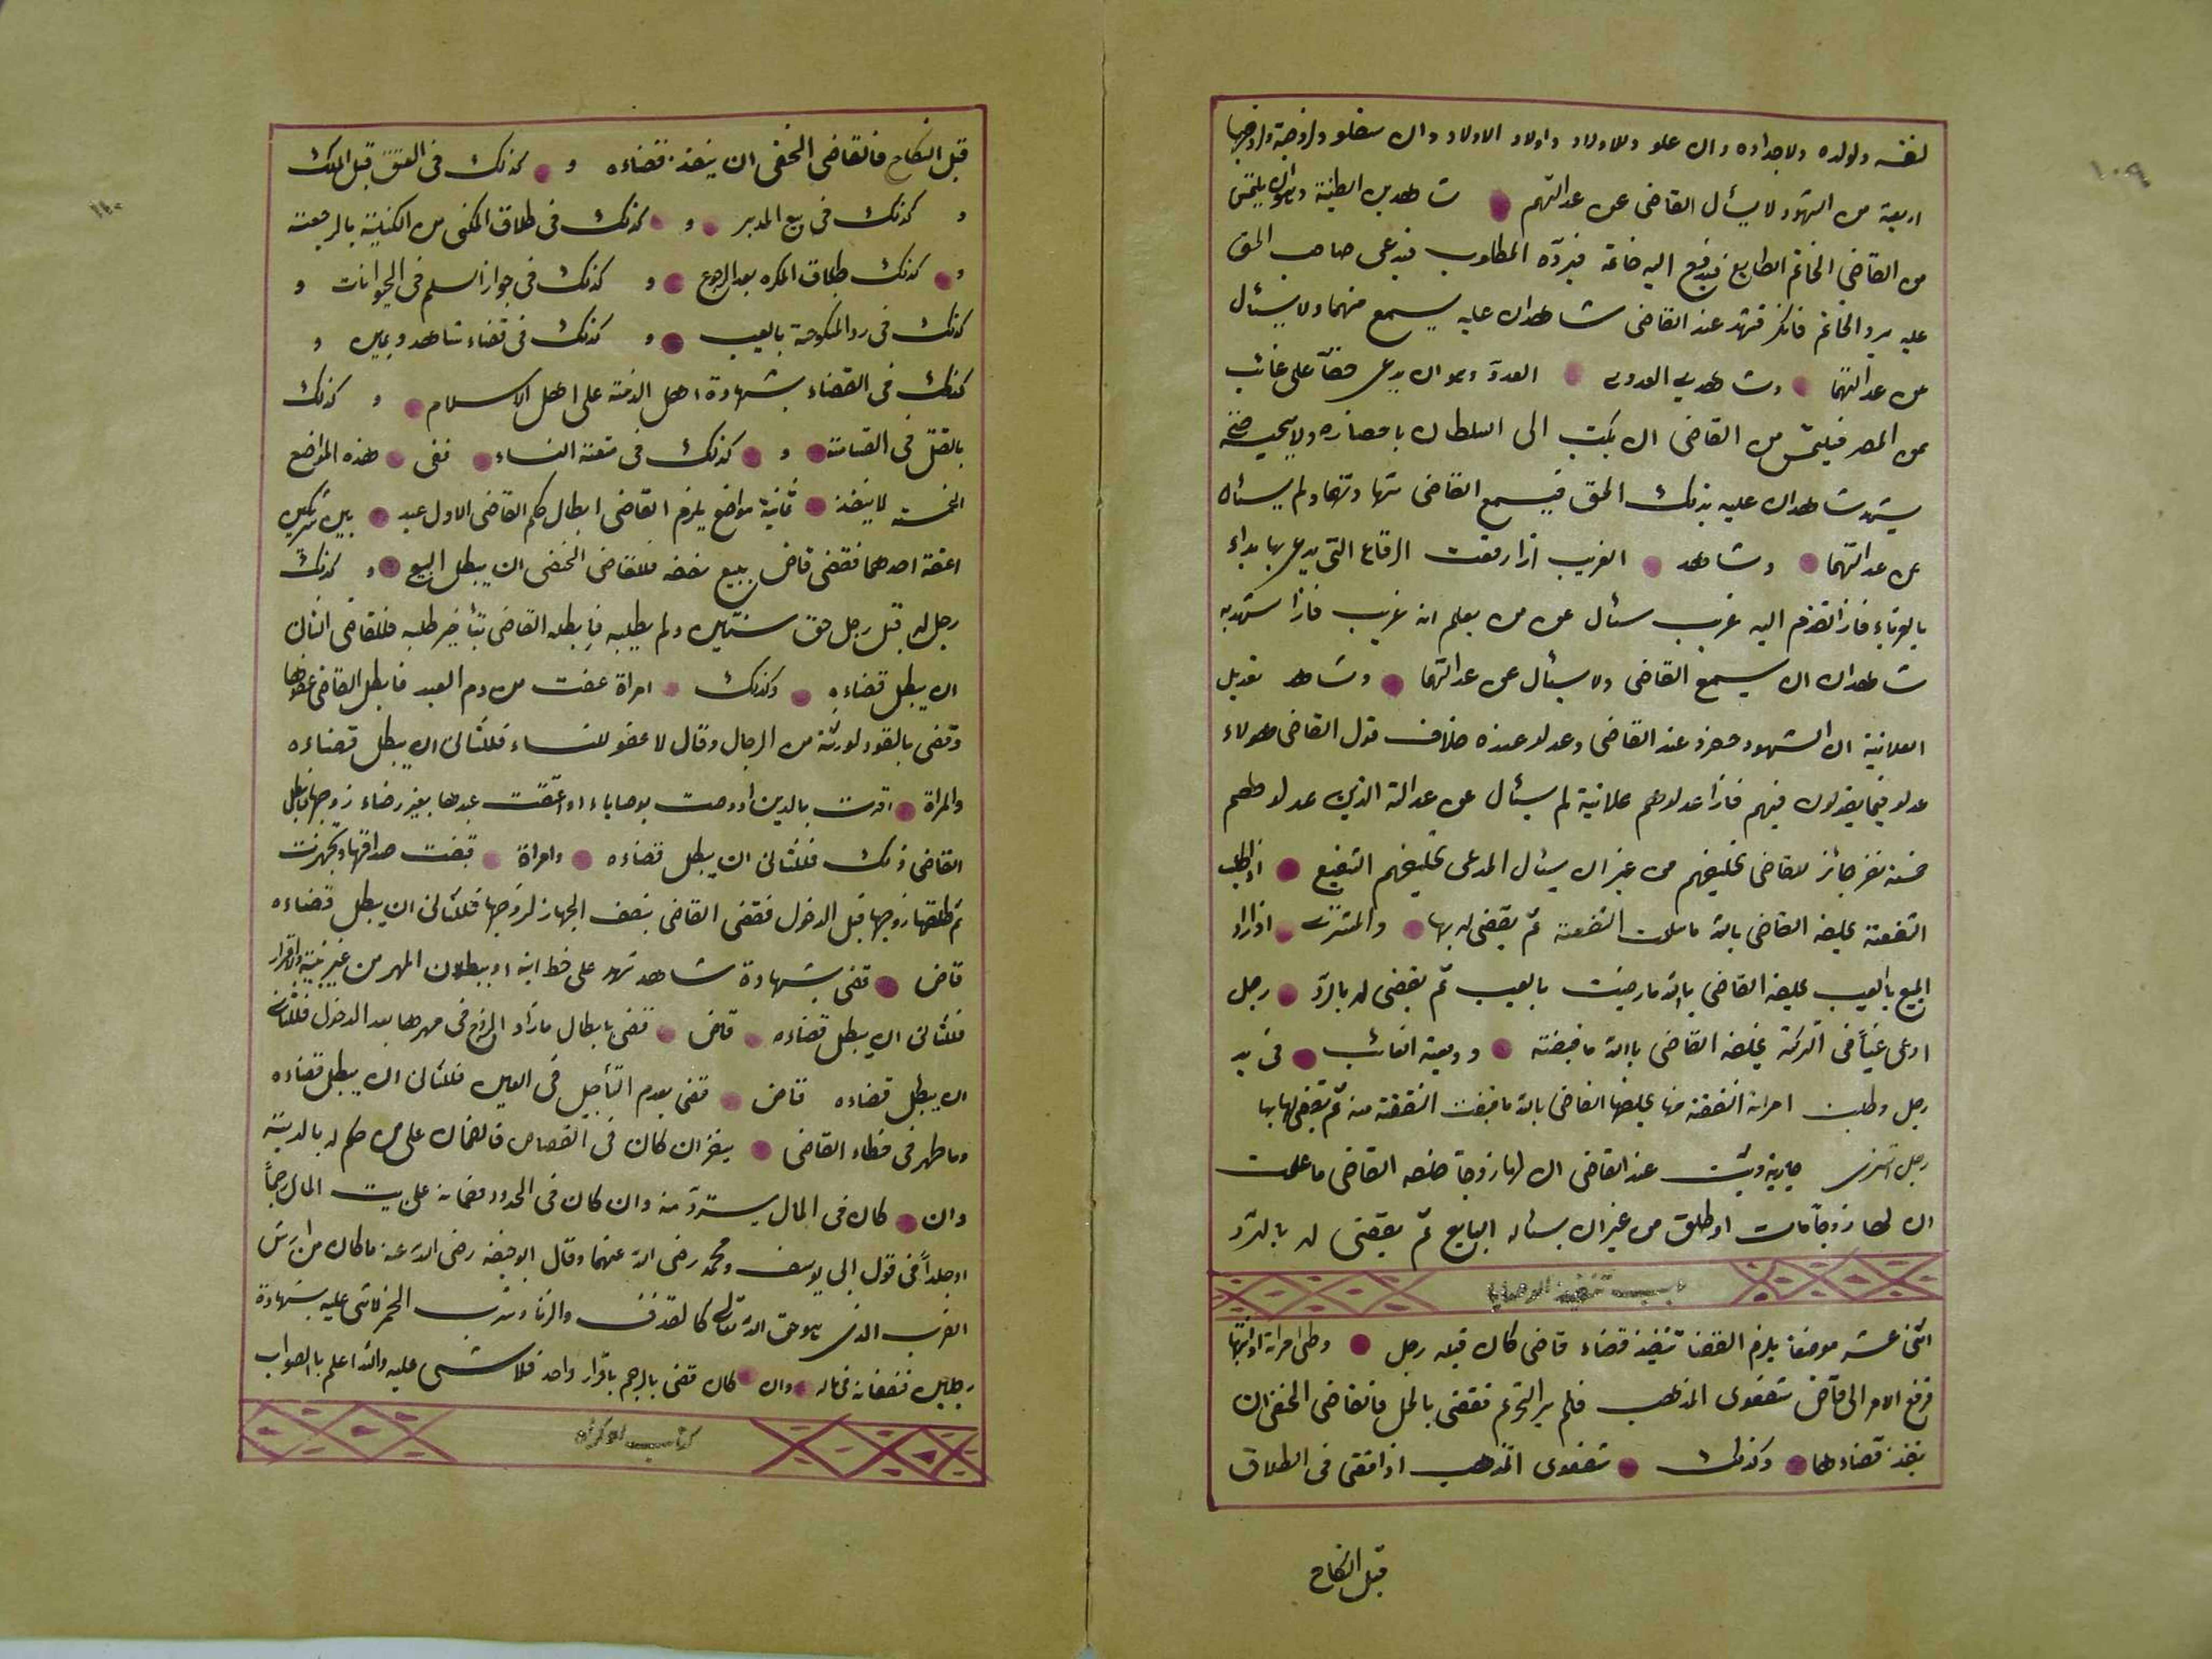 ١٠٩
لنفسه ولولده ولاجداده وان علو وللاولاد واولاد الاولاد وان سفلو ولزوجته ولزوجها
اربعة من الشهود لا يسأل القاضى عن عدالتهم شاهدين الطينة وهو ان يلتمس
من القاضى الخاتم الطابع فيدفع اليه خاتمه فيردّه المطلوب فيدعى صاحب الحق
عليه برد الخاتم فانكر فشهد عند القاضى شاهدان عليه يسمع منهما ولا يسئال
عن عدالتهما وشاهدى العدوى العدوّ وهو ان يدعى حقّاً على غائب
عن المصر فيلتمس من القاضى ان يكتب الى السلطان باحضاره ولا يجيبه حتى
يشهد شاهدان عليه بذلك الحق فيسمع القاضى شهادتهما ولم يسئال
عن عدالتهما وشاهد الغريب اذا رفعت الرقاع التى يدعى بها بداء
بالغرباء فاذا تقدم اليه غريب سئال عن من يعلم انه غريب فاذا شهد به
شاهدان ان يسمع القاضى ولا يسئال عن عدالتهما وشاهد تعديل
العلانية ان الشهود حضرو عند القاضى وعدلو عنده خلاف قول القاضى هولاء
عدلو فيما يقولون فيهم فاذا عدلوهم علانية لم يسئال عن عدالة الذين عدلوهم
خمسة نفر جائز للقاضى تحليفهم من غير ان يسئال المدعى تحليفهم الشفيع اذا طلب
الشفعة يحلفه القاضى بالله ما سلمت الشفعة ثم يقضى له بها والمشترى اذا اراد
المبيع بالعيب يحلفه القاضى بالله ما رضيت بالعيب ثم يقضى له بالردّ رجل
ادعى فى التركة يحلفه القاضى بالله ما قبضته ووديعة الغائب فى يد
رجل وطلبت امراته النفقة منها يحلفها القاضى بالله ما قبضت النفقة منه ثم يقضى لها بها
رجل اشترى جارية عند القاضى ان لها زوجا حلفه القاضى ما علمت
ان لها زوجاً مات او طلق من غير ان يسئاله البايع ثم يقضى له بالرّد
باب تنفيذ
اثنى عشر موضعاً يلزم القضا تنفيذ قضاء قاضى كان قبله رجل وطى امراته او ابنتها
فرفع الامر الى قاض شفعوى المذهب فلم ير التحريم فقضى بالحل فالقاضى الحنفى ان
ينفذ قضاءهما وكذلك شفعوى المذهب اذا قضى فى الطلاق
قبل النكاح
١١٠
قبل النكاح فالقاضى الحنفى ان ينفذ قضاءه و كذلك فى العتق قبل الملك
و كذلك فى بيع المدبر و كذلك فى طلاق المكنى من الكناية بالرجعة
و كذلك طلاق المكره بعد الرجوع و كذلك فى جواز السلم فى الحيوانات و
كذلك فى رد المنكوحة بالعيب و كذلك فى قضاء شاهد ويمين و
كذلك فى القضاء بشهادة اهل الذمة على اهل الاسلام و كذلك
بالقتل فى القسامة و كذلك فى متعة النساء ففى هذه المواضع
الخمسة لا ينفذ ثمانية مواضع يلزم القاضى ابطال حكم القاضى الاول عبد بين شريكين
اعتقه احدهما فقضى قاض ببيع نصفه فللقاضى الحنفى ان يبطل البيع و كذلك
رجل له قبل رجل حق سنتين ولم يطلبه فابطله القاضى بتأخير طلبه فللقاضى الثانى
ان يبطل قضاءه وكذلك امراة عفت من دم العمد فابطل القاضى عفوها
وقضى بالقود لورثة من الرجال وقال لا عفو للنساء فللثانى ان يبطل قضاءه
والمراة اقرت بالدين او وصت بوصاياء او اعتقت عبدها بغير رضاء زوجها فابطل
القاضى ذلك فللثانى ان يبطل قضاءه وامراة قبضت صداقها وتجهزت
ثم طلقها زوجها قبل الدخول فقضى القاضى بنصف الجهاز لزوجها فللثانى ان يبطل قضاءه
قاض قضى بشهادة شاهد شهد على خط ابيه او ببطلان المهر من غير بينة ولا اقرار
فللثانى ان يبطل قضاءه قاض قضى بابطال ما زاد الزوج فى مهرها بعد الدخول فللثانى
ان يبطل قضاءه قاض قضى بعدم التأجيل فى العنين فللثانى ان يبطل قضاءه
وما ظهر فى خطاء القاضى ينظر ان كان فى القصاص فالضمان على من حكم له بالدية
وان كان فى المال يستردّ منه وان كان فى الحدود فضمانه على بيت المال رجماً
او جلداً فى قول ابى يوسف ومحمد رضى الله عنهما وقال ابو حنيفه رضى الله عنه ما كان من ارش
الضرب الذى هو حق الله تعالى كالقذف والزنا وشرب الخمر لا شى عليه بشهادة
رجلين فضمانه فى ماله وان كان قضى بالرجم باقرار واحد فلا شىء عليه والله اعلم بالصواب
كتاب الاكراه